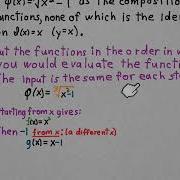 φ(x)=√x²-1 as the compositio
functions, none of which is the iden
on ∂(x)=x (y=x).
ut the functions in the order in w
you would evaluate the functio
The input is the same for each st
φ(x)=√x²-1
starting from x gives:
f(x)=x²
Then -1 from x: (a different x)
g(x)=x-1